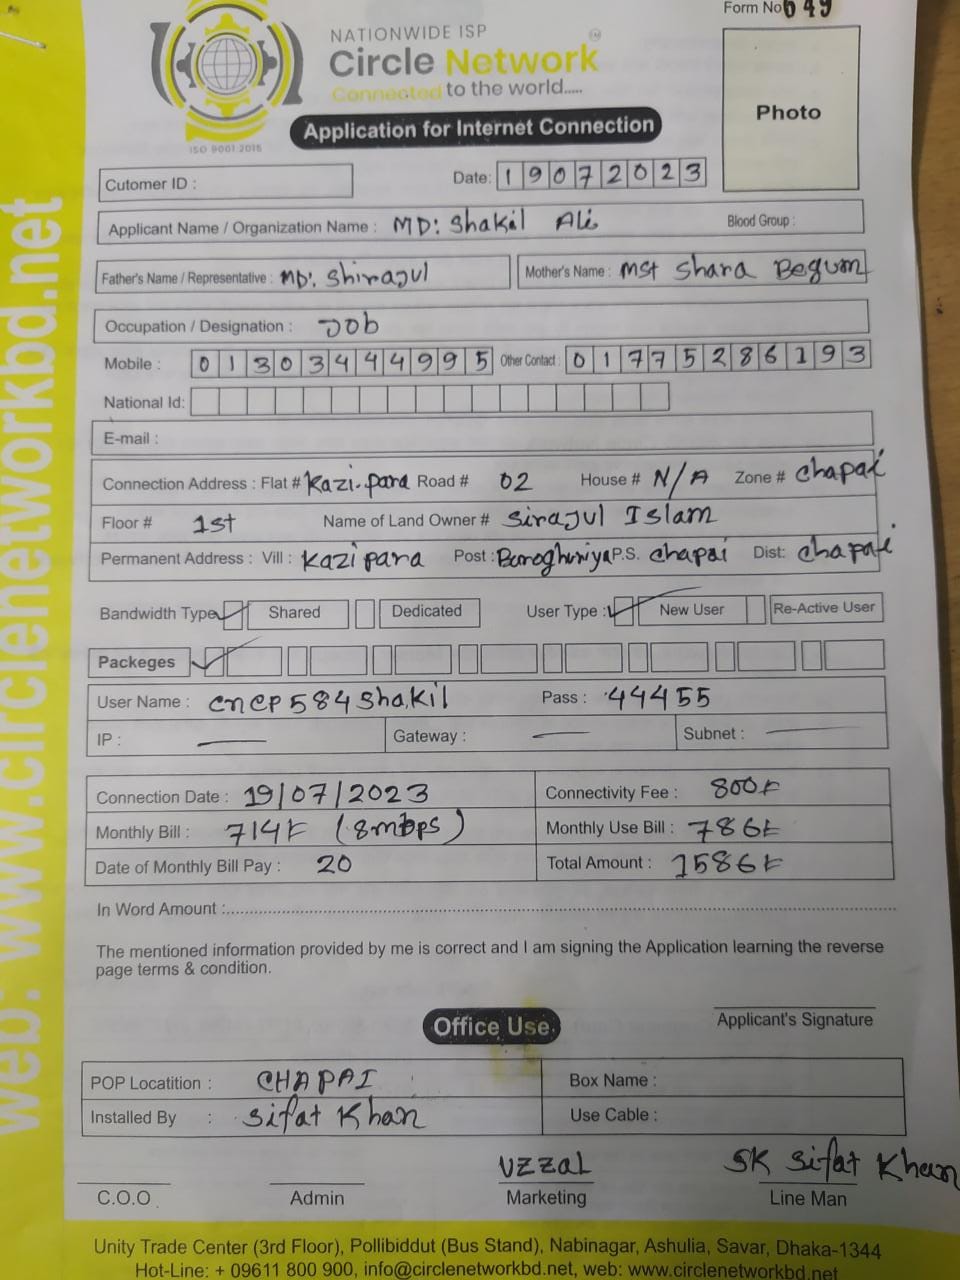 Form No 649
NATIONWIDE ISP
Circle Network
Connected to the world.....
ISO 9001:2015
Application for Internet Connection
Photo
Cutomer ID :
Date: 19072023
Applicant Name / Organization Name : MD: Shakil Ali Blood Group :
Father's Name / Representative : MD: Shirajul Mother's Name : Mst Shara Begum
Occupation / Designation : Job
Mobile : 01303444995 Other Contact : 01775286193
National Id:
E-mail :
Connection Address : Flat # Kazi-para Road # 02 House # N/A Zone # Chapai
Floor # 1st Name of Land Owner # Sirajul Islam
Permanent Address : Vill : Kazipara Post : Baroghoriya P.S. Chapai Dist: Chapai
Bandwidth Type Shared Dedicated User Type : New User Re-Active User
Packeges
User Name : cncp584shakil Pass : 44455
IP : Gateway : Subnet :
Connection Date : 19/07/2023 Connectivity Fee : 800৳
Monthly Bill : 714৳ (8mbps) Monthly Use Bill : 786৳
Date of Monthly Bill Pay : 20 Total Amount : 1586৳
In Word Amount :
The mentioned information provided by me is correct and I am signing the Application learning the reverse
page terms & condition.
Applicant's Signature
Office Use.
POP Locatition : CHAPAI Box Name :
Installed By : Sifat Khan Use Cable :
UZZAL SK Sifat Khan
C.O.O Admin Marketing Line Man
Unity Trade Center (3rd Floor), Pollibiddut (Bus Stand), Nabinagar, Ashulia, Savar, Dhaka-1344
Hot-Line: + 09611 800 900, info@circlenetworkbd.net, web: www.circlenetworkbd.net
web: www.circlenetworkbd.net